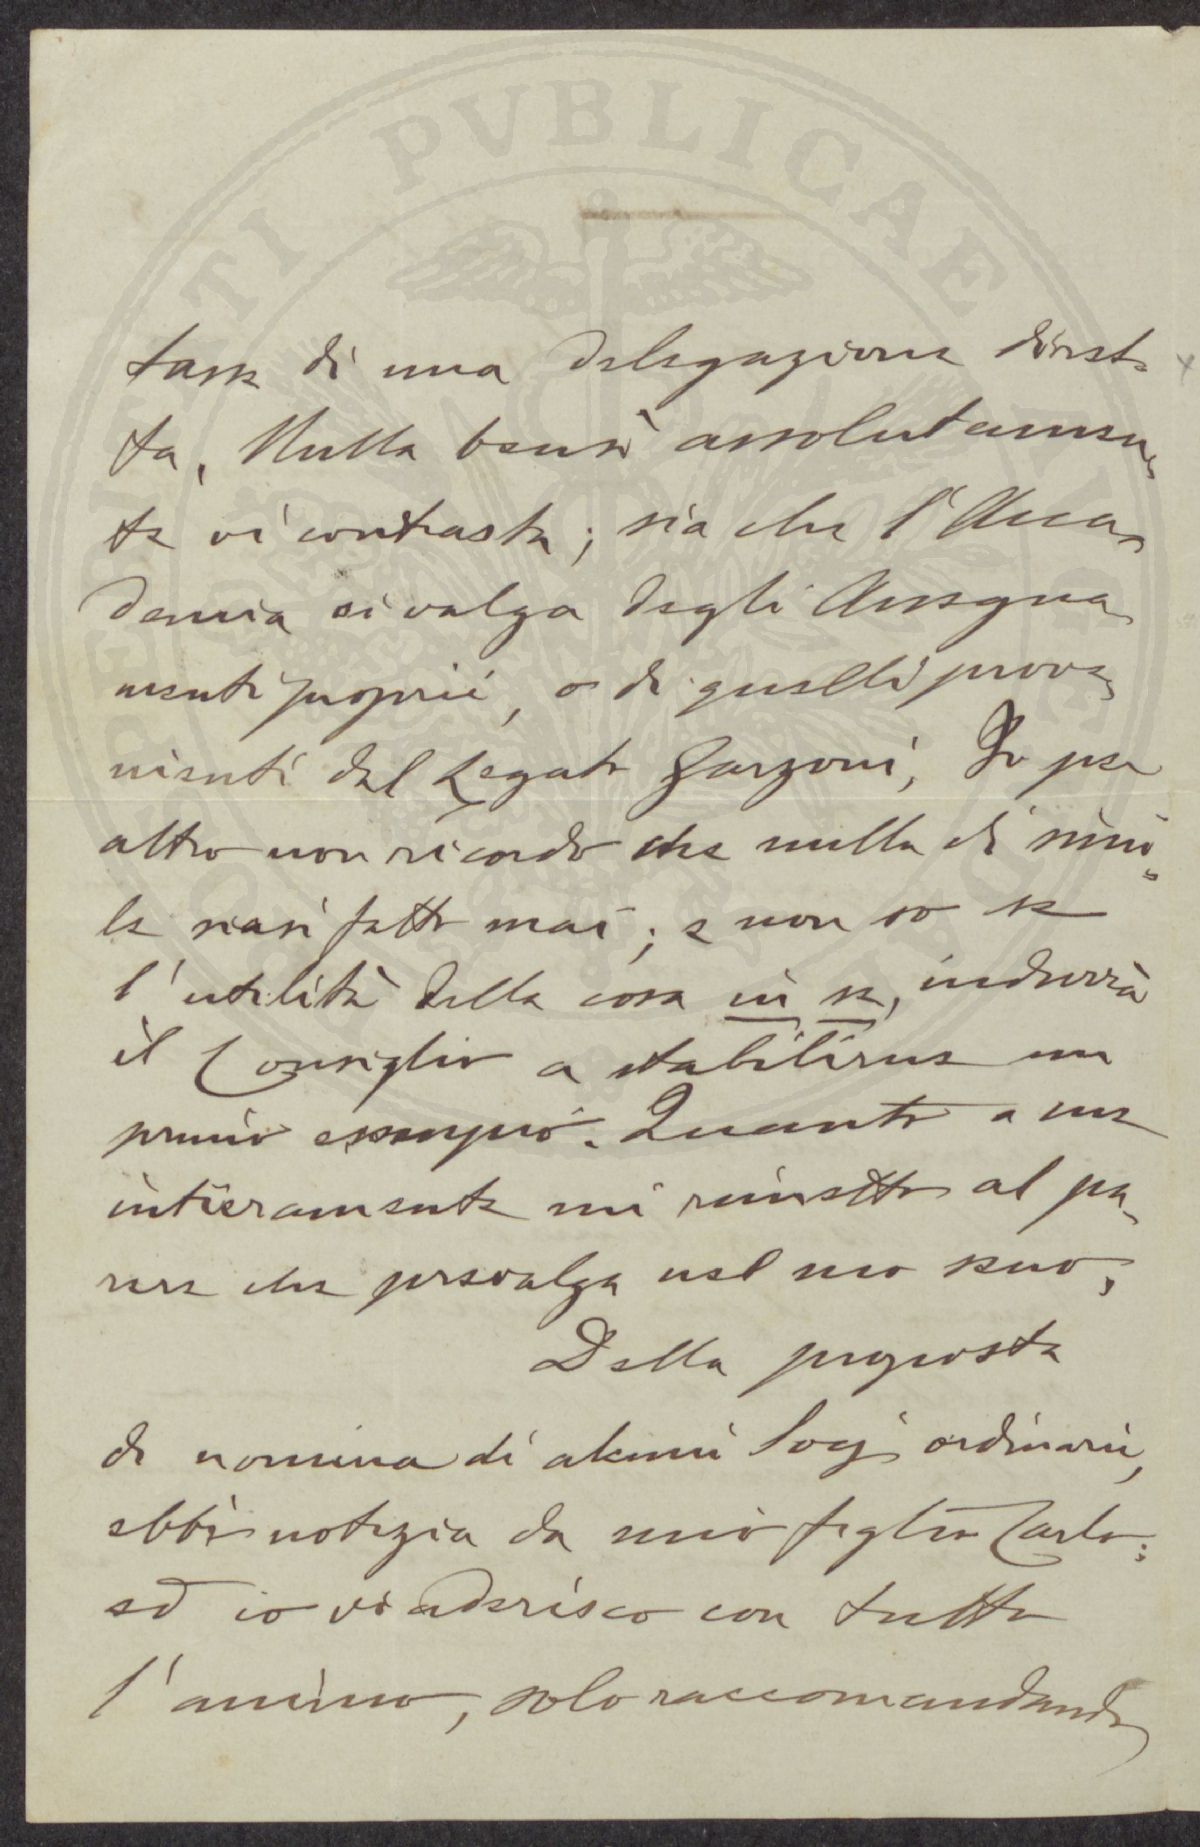 PVBLICAE
tasse di una delegazione diret=
ta. Nulla bensì assolutamen=
te vi contrasta; sia che l'Acca=
demia si valga degli Assegna
menti proprii, o di quelli prove=
nienti dal Legato Garzoni, Io per
altro non ricordo che nulla di simi=
le siasi fatto mai; e non so se
l'utilità della cosa in se, indurrà
il Consiglio a stabilirne un
primo esempio. Quanto a me
intieramente mi rimetto al pa=
rere che prevalga nel suo seno,
Della proposta
di nomina di alcuni Socj ordinarii,
ebbi notizia da mio figlio Carlo;
ed io vi aderisco con tutto
l'animo, solo raccomandando